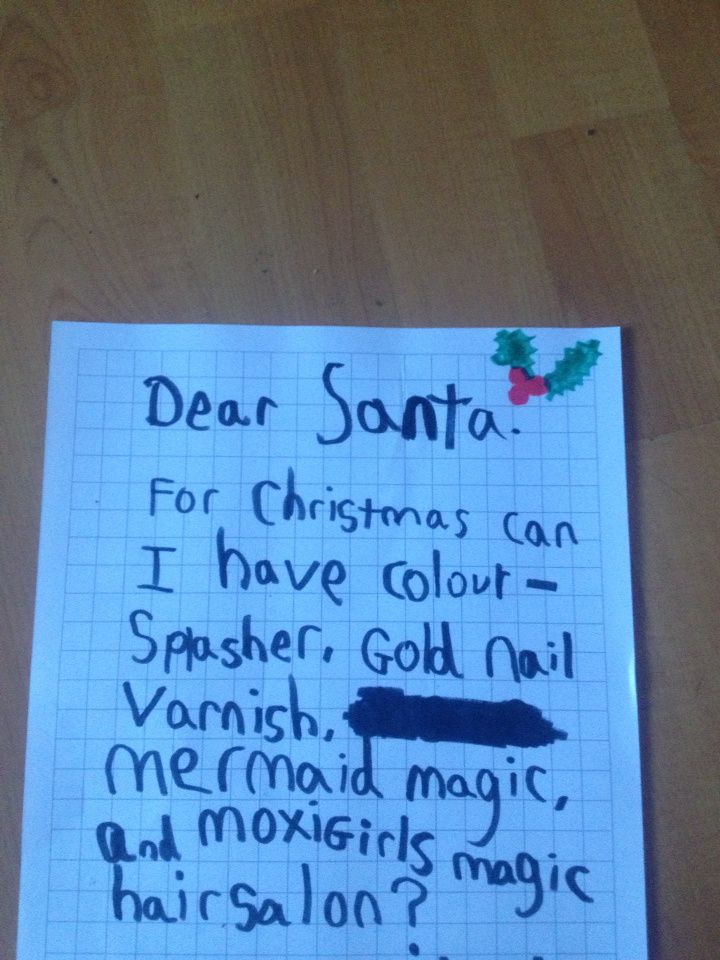 Dear Santa.
For Christmas can
I have colour-
Splasher, Gold nail
Varnish,
mermaid magic,
and moxiGirls magic
hairsalon?